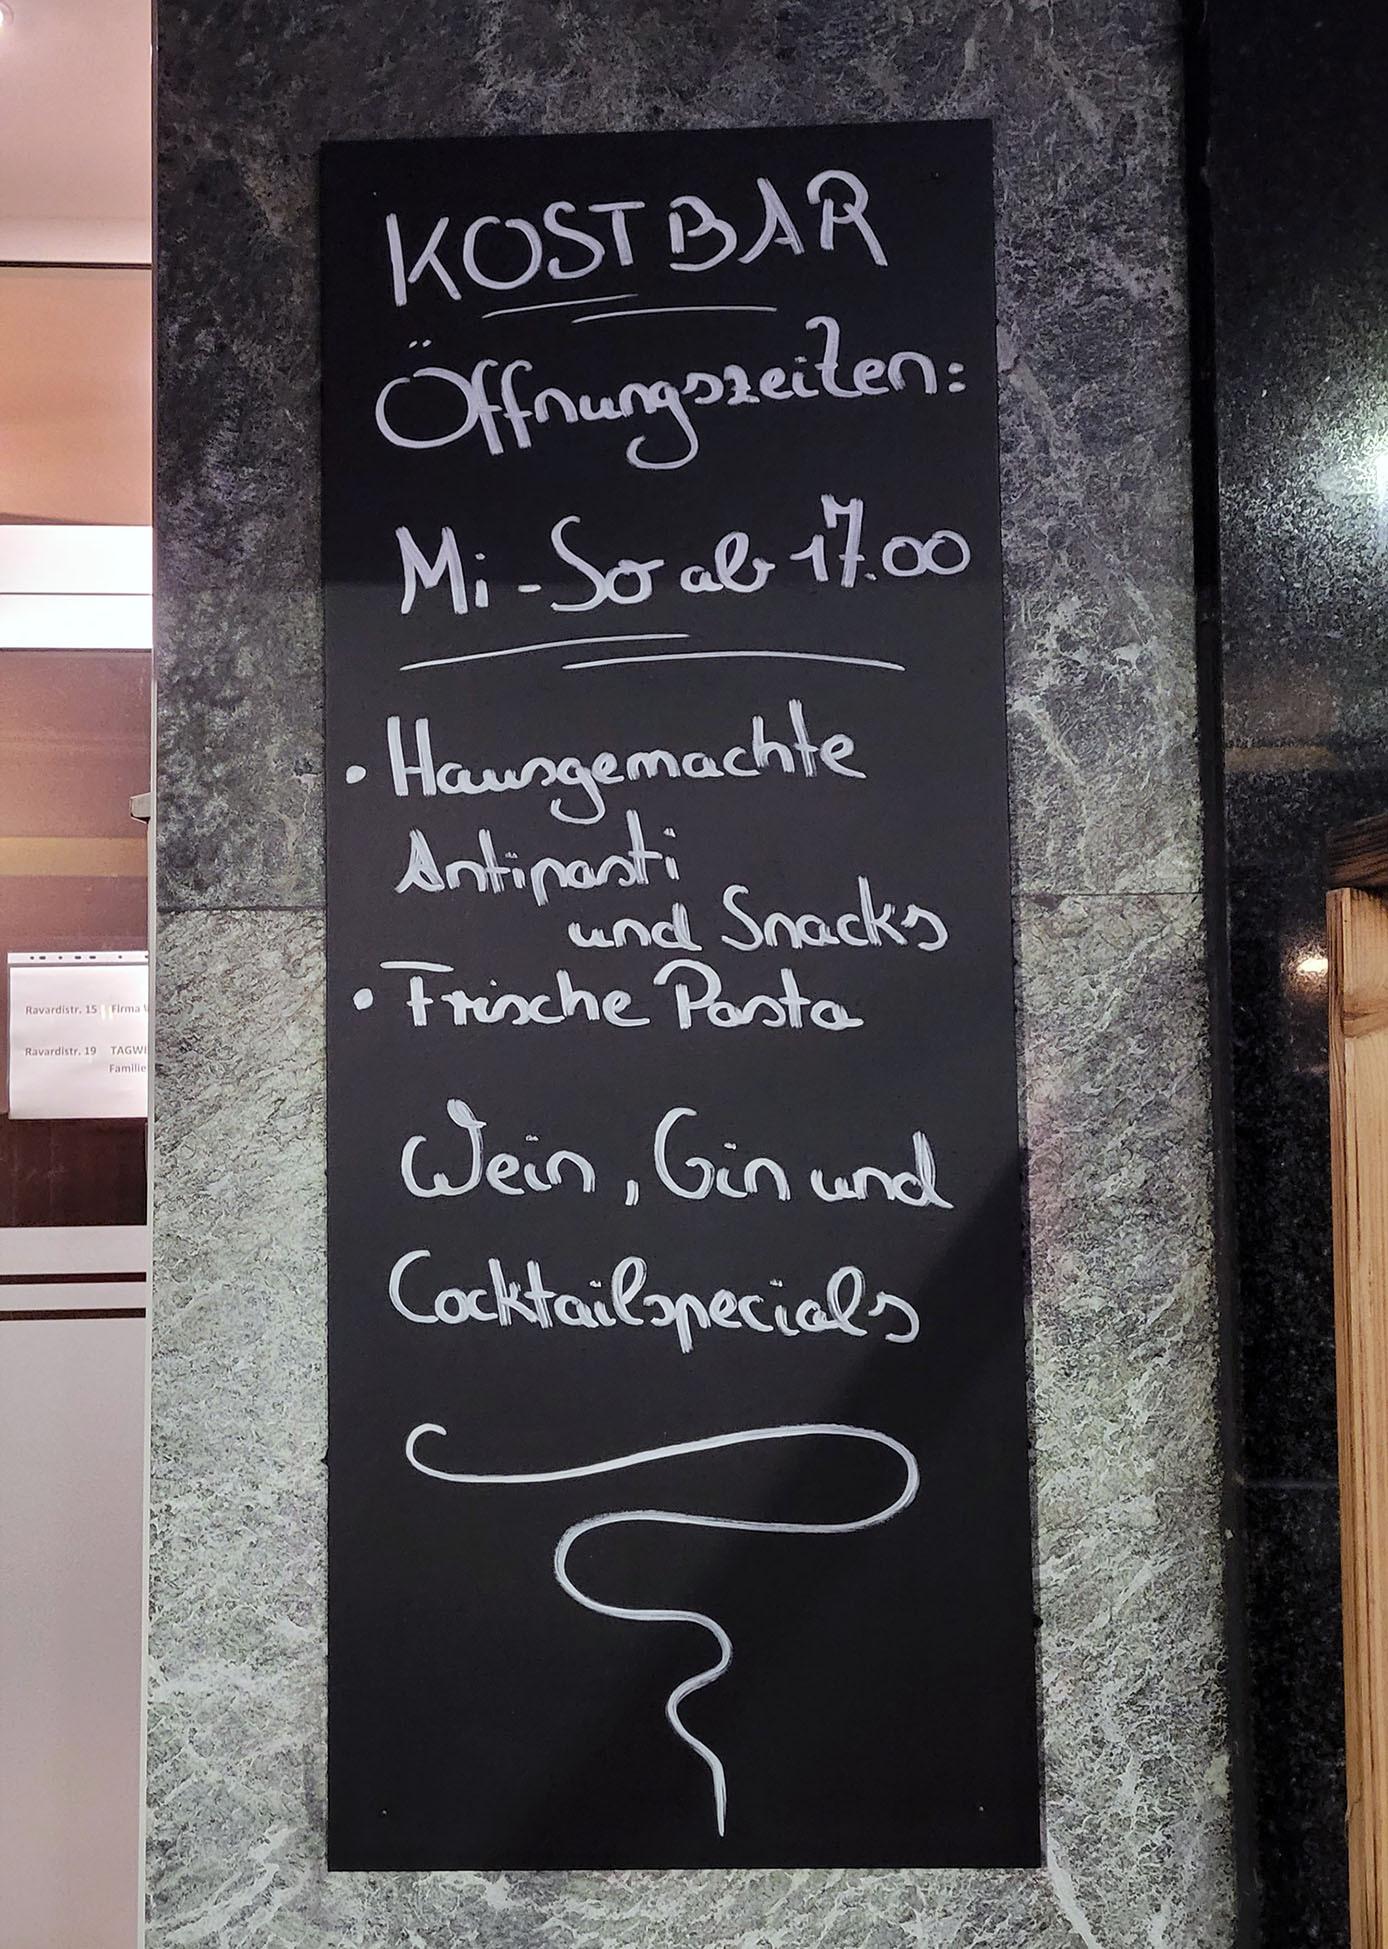 KOSTBAR
Öffnungszeiten:
Mi - So ab 17.00
• Hausgemachte
Antipasti
und Snacks
• Frische Pasta
Wein, Gin und
Cocktailspecials
Ravardistr. 15 Firma
Ravardistr. 19 TAGWE
Familie